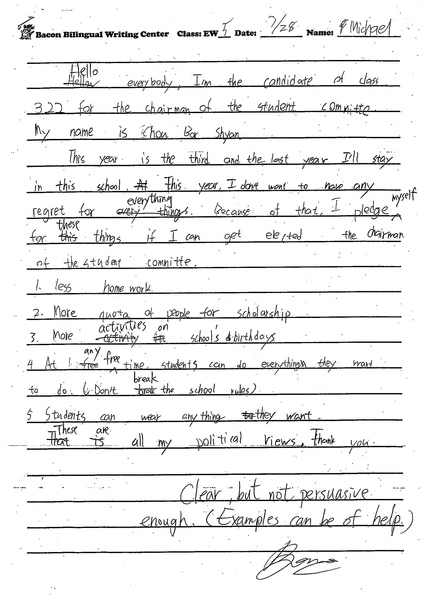 Bacon Bilingual Writing Center Class: EW I Date: 7/28 Name: Michael
Hello
Hellow everybody, I'm the candidate of class
322 for the chairman of the student committe.
My name is Chou Bor Shyan.
This year is the third and the last year I'll stay
in this school. At This year, I don't want to have any
everything myself
regret for every things. Because of that, I pledge
these
for this things if I can get elected the chairman
of the student committe.
1. less home work
2. More quota of people for scholarship
activities on
3. More activity in school's birthdays
any free
4 At free time, students can do everythings they want
break
to do. (Don't the school rules)
5 Students can wear anything to they want.
These are
That is all my political views, Thank you.
Clear, but not persuasive
enough. (Examples can be of help.)